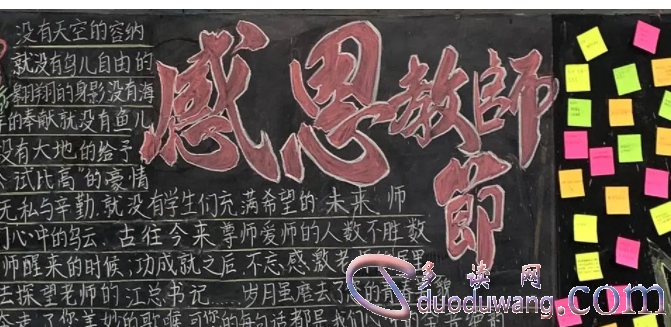 感恩教師節
没有天空的容纳
就没有鸟儿自由的
翱翔的身影没有海
的奉献就没有鱼儿
没有大地的给予
试比高"的豪情
无私与辛勤.就没有学生们充满希望的未来.师
心中的乌云.古往今来尊师爱师的人数不胜数
师醒来的时候,功成就之后不忘感激老
去探望老师的江总书记……岁月虽磨去了您的青
了您美妙的歌喉可您的每句话都是我们心
多读网
duoduwang.com